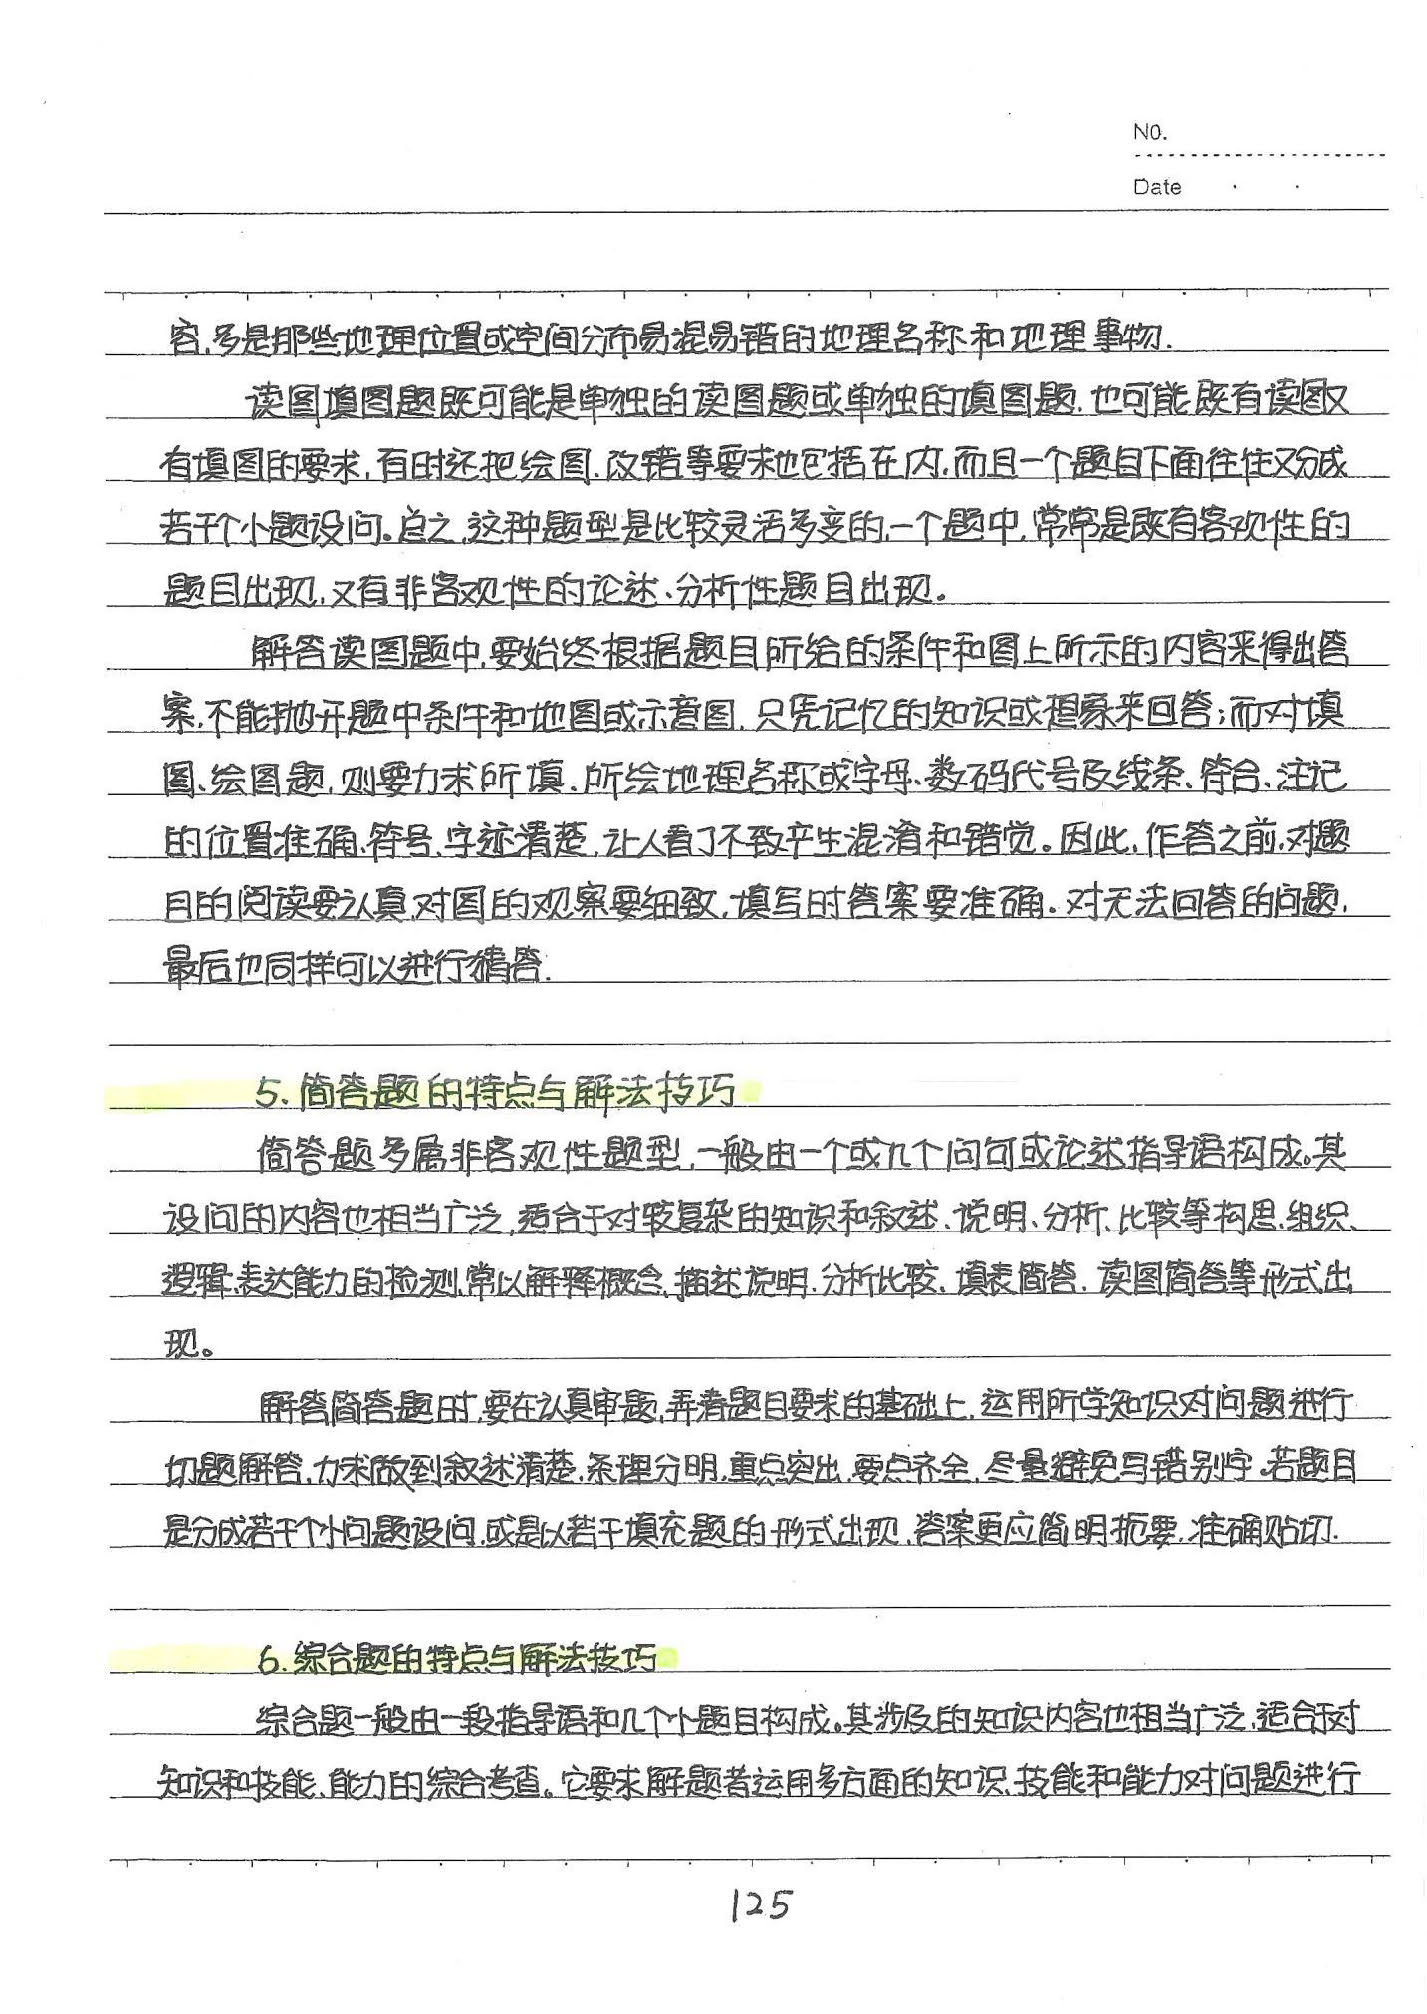 NO.
Date
容,多是那些地理位置或空间分布易混易错的地理名称和地理事物.
读图填图题既可能是单独的读图题或单独的填图题,也可能既有读图又
有填图的要求,有时还把绘图、改错等要求也包括在内,而且一个题目下面往往又分成
若干个小题设问。总之,这种题型是比较灵活多变的,一个题中,常常是既有客观性的
题目出现,又有非客观性的论述、分析性题目出现。
解答读图题中,要始终根据题目所给的条件和图上所示的内容来得出答
案,不能抛开题中条件和地图或示意图,只凭记忆的知识或想象来回答;而对填
图、绘图题,则要力求所填、所绘地理名称或字母、数码代号及线条、符合、注记
的位置准确,符号、字迹清楚,让人看了不致产生混淆和错觉。因此,作答之前,对题
目的阅读要认真,对图的观察要细致,填写时答案要准确。对无法回答的问题,
最后也同样可以进行猜答.
5.简答题的特点与解法技巧
简答题多属非客观性题型,一般由一个或几个问句或论述指导语构成。其
设问的内容也相当广泛,适合于对较复杂的知识和叙述、说明、分析、比较等构思、组织、
逻辑、表达能力的检测,常以解释概念、描述说明、分析比较、填表简答、读图简答等形式出
现。
解答简答题时,要在认真审题,弄清题目要求的基础上,运用所学知识对问题进行
切题解答,力求做到叙述清楚,条理分明,重点突出,要点齐全,尽量避免写错别字。若题目
是分成若干个小问题设问,或是以若干填充题的形式出现,答案更应简明扼要,准确贴切.
6.综合题的特点与解法技巧
综合题一般由一段指导语和几个小题目构成。其涉及的知识内容也相当广泛,适合于对
知识和技能、能力的综合考查。它要求解题者运用多方面的知识、技能和能力对问题进行
125